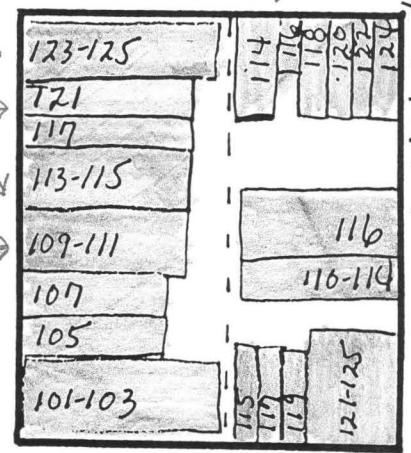 123-125
121
117
113-115
109-111
107
105
101-103
114
116
118
120
122
124
116
110-114
115
117
119
121-125